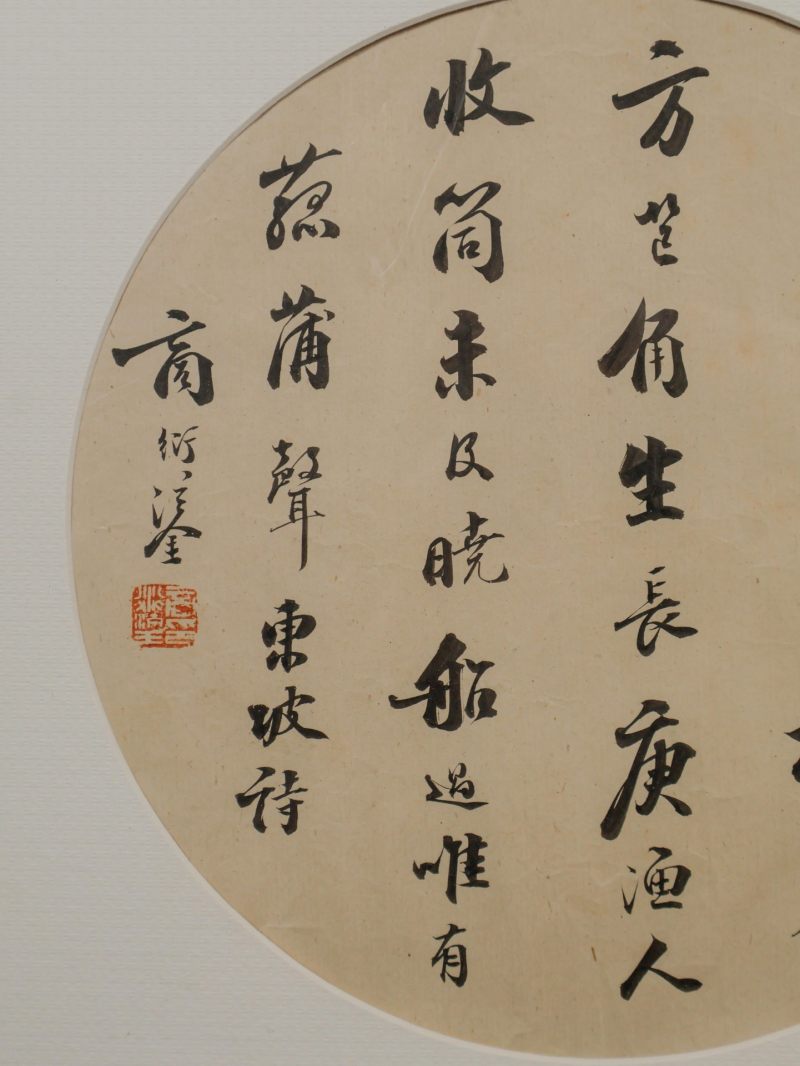 方芒角生長庚漁人
收筒未及曉船過唯有
菰蒲聲東坡詩
商衍鎏